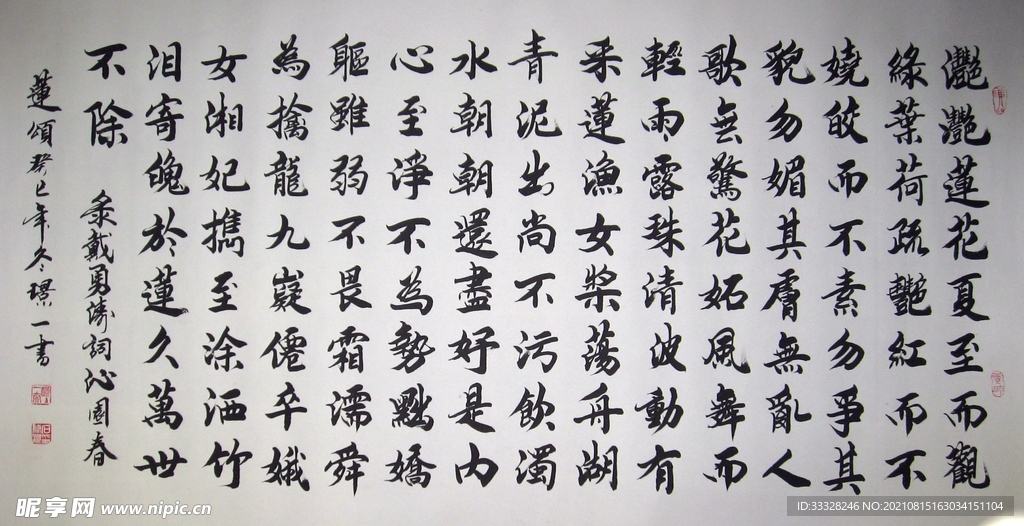 灧灧蓮花夏至而觀
綠葉荷疏艷紅而不
嬈皎而不素勿爭其
貌勿媚其膚無亂人
歌無驚花妬風舞而
輕雨露珠清波動有
采蓮漁女槳蕩舟湖
青泥出尚不污飲濁
水朝朝還盡好是內
心至淨不為勢黜嬌
軀雖弱不畏霜濡舜
為擒龍九嶷僊卒娥
女湘妃攜至涂洒竹
泪寄魄於蓮久萬世
不除
彔戴勇濤詞沁園春
蓮頌癸巳年冬璟一書
昵享网 www.nipic.cn
ID:33328246 NO:20210815163034151104